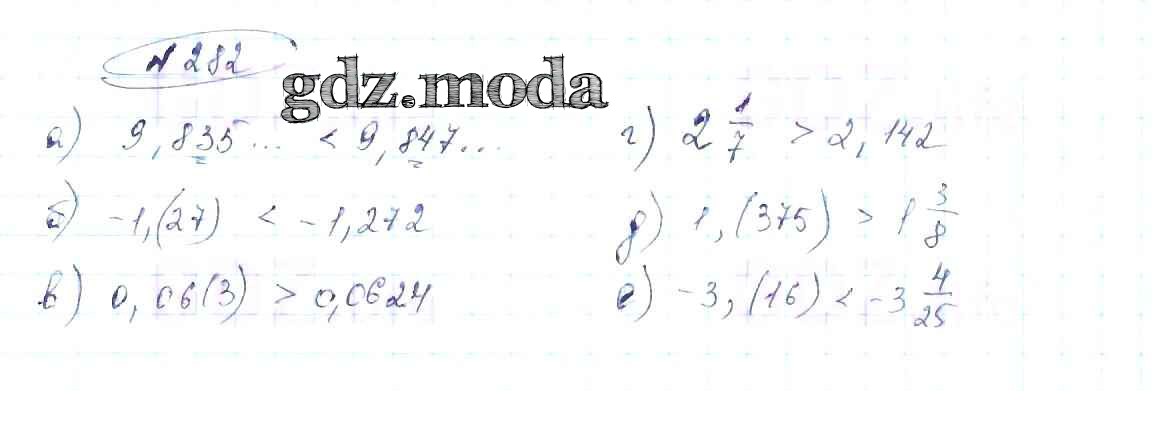 № 282
gdz.moda
а) 9,835... < 9,847...
б) -1,(27) < -1,272
в) 0,06(3) > 0,0624
г) 2 1/7 > 2,142
д) 1,(375) > 1 3/8
е) -3,(16) < -3 4/25